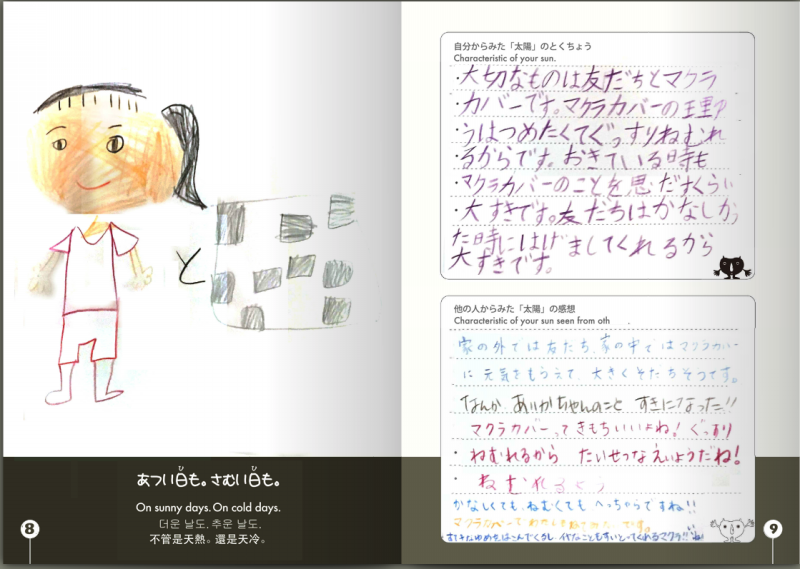 と
あつい日も。さむい日も。
On sunny days. On cold days.
더운 날도, 추운 날도,
不管是天熱。還是天冷。
8
自分からみた「太陽」のとくちょう
Characteristic of your sun.
・大切なものは友だちとマクラ
カバーです。マクラカバーの理ゆ
うはつめたくてぐっすりねむれ
るからです。おきている時も
マクラカバーのことを思いだすくらい
大すきです。友だちはかなしかっ
た時にはげましてくれるから
大すきです。
他の人からみた「太陽」の感想
Characteristic of your sun seen from oth
家の外では友だち、家の中ではマクラカバー
に元気をもらえて、大きくそだちそうです。
なんか あいかちゃんのこと すきになった!!
マクラカバーってきもちいいよね! ぐっすり
ねむれるから たいせつなえいようだね!
ねむれるそう
かなしくても、ねむくても へっちゃらですね!!
マクラカバーで
9